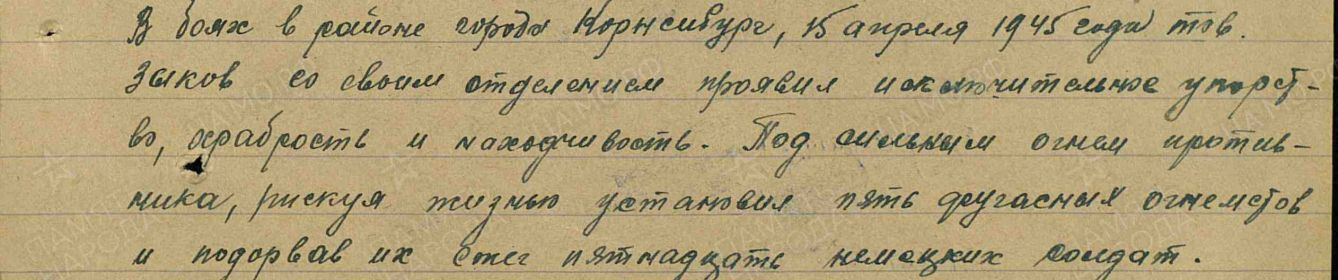 В боях в районе города Корнейбург, 15 апреля 1945 года тов.
Зыков со своим отделением проявил исключительное упорст-
во, храбрость и находчивость. Под сильным огнем против-
ника, рискуя жизнью установил пять фугасных огнеметов
и подорвав их сжег пятнадцать немецких солдат.